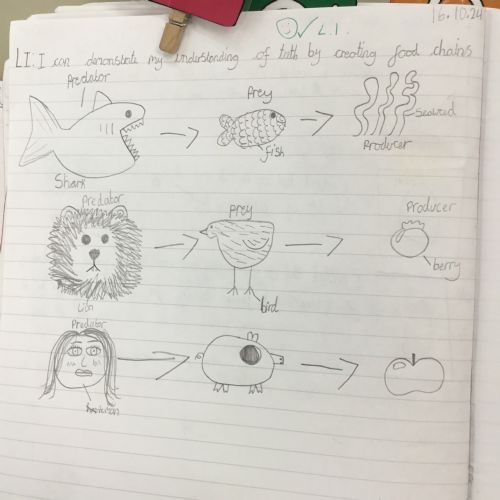 16.10.24
✓ L.I.
LI: I can demonstrate my understanding of teeth by creating food chains
Predator
Prey
Seaweed
fish
Producer
Shark
Predator
Prey
Producer
berry
Lion
bird
Predator